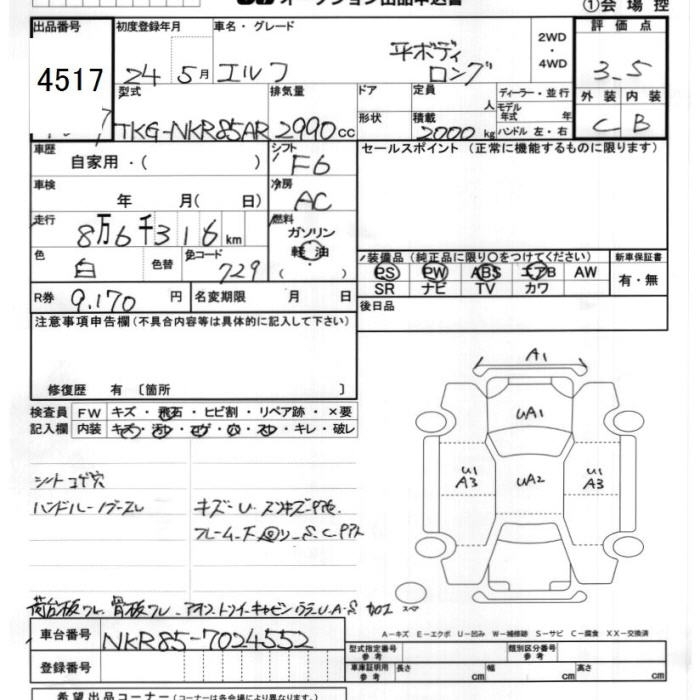 オークション出品申込書
①会場控
出品番号 初度登録年月 車名・グレード 2WD・4WD 評価点
4517 24 5月 エルフ 平ボディ ロング 3.5
型式 排気量 ドア 定員 人 ディーラー・並行 外装 内装
モデル年式 年
TKG-NKR85AR 2990cc 形状 積載 2000kg ハンドル 左・右 C B
車歴 自家用・( ) シフト F6 セールスポイント (正常に機能するものに限ります)
車検 年 月( 日) 冷房 AC
走行 8万6千316km 燃料 ガソリン 軽油 ( )
色 白 色替 色コード 729 装備品 (純正品に限り○をつけてください) 新車保証書
PS PW ABS エアB AW 有・無
SR ナビ TV カワ
R券 9,170円 名変期限 月 日 後日品
注意事項申告欄(不具合内容等は具体的に記入して下さい)
修復歴 有 〔箇所 〕
検査員記入欄 FW キズ・飛石・ヒビ割・リペア跡・×要
内装 キズ・汚レ・コゲ・穴・スレ・キレ・破レ
A1
UA1
U1 A3 UA2 U1 A3
シートコゲ穴
ハンドル
キズ-U
フレーム下回リ-S.C
スペア
A-キズ E-エクボ U-凹み W-補修跡 S-サビ C-腐食 XX-交換済
車台番号 NKR85-7024552
型式指定番号 参考 類別区分番号 参考
登録番号 車庫証明用 参考 長さ cm 幅 cm 高さ cm
希望出品コーナー(コーナーは各会場により異なります。)